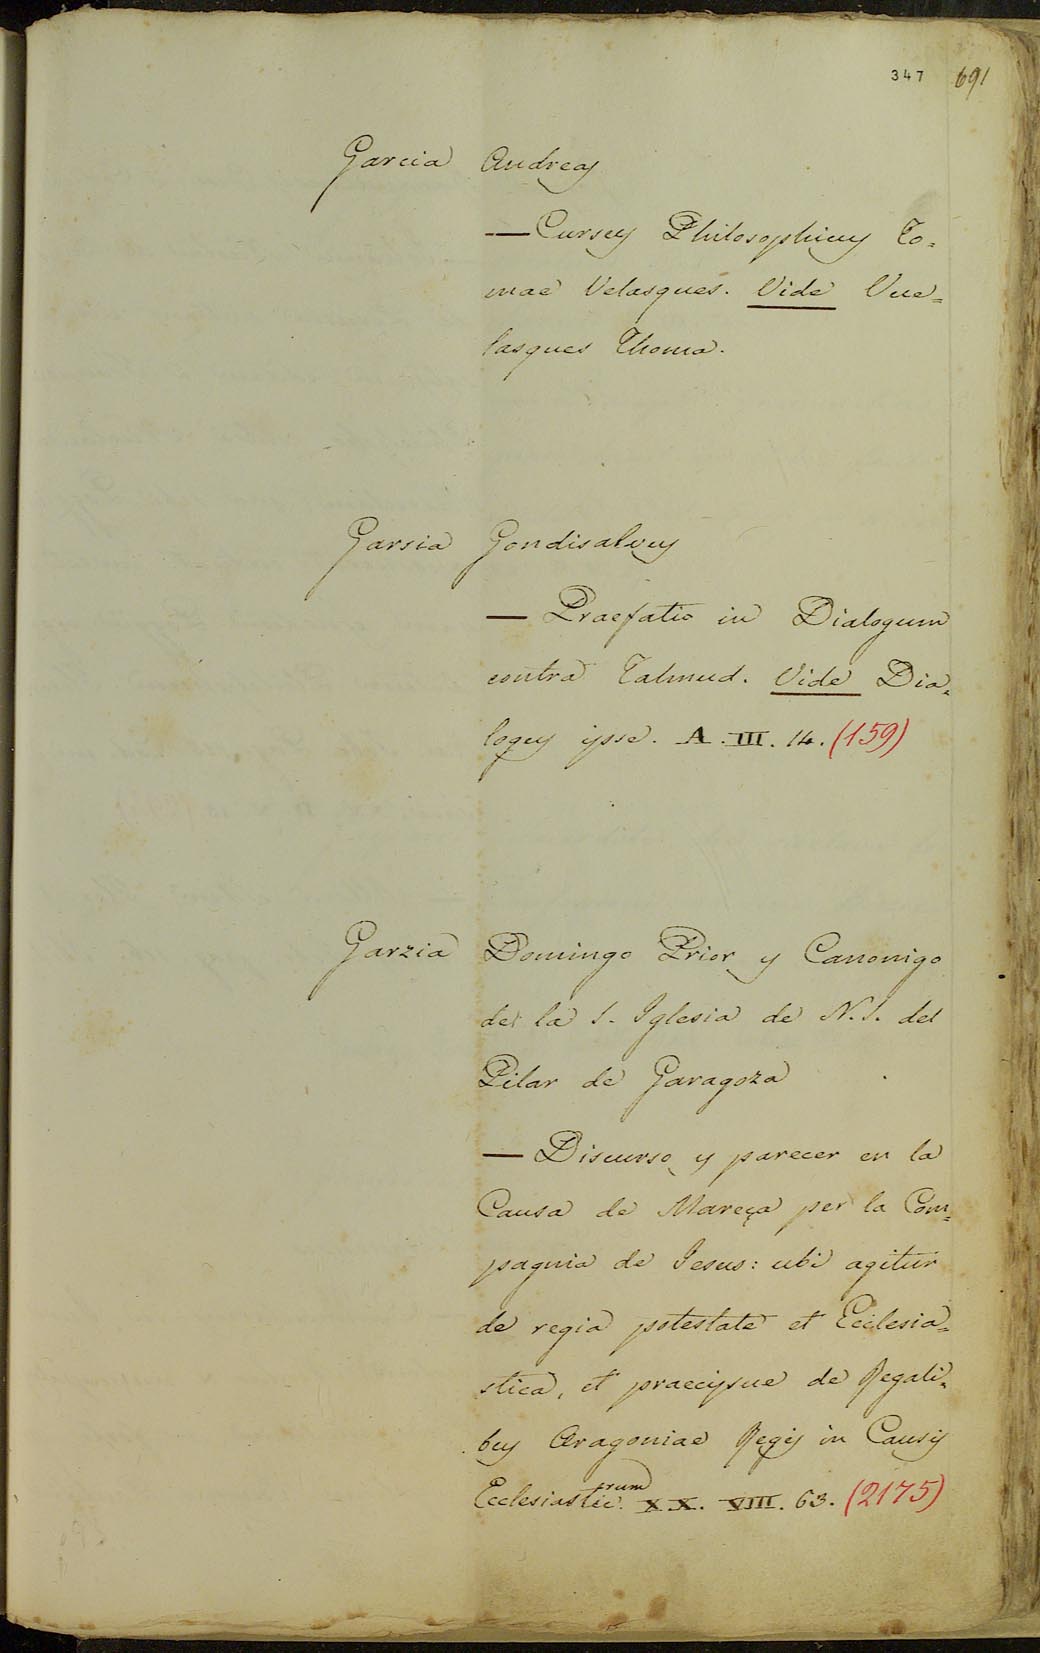 347 691
Garcia Andreas
— Cursus Philosophicus To-
mae Velasques. Vide Vue-
lasques Thoma.
Garsia Gondisalvus
— Praefatio in Dialogum
contra Talmud. Vide Dia-
logus ipse. A. III. 14. (159)
Garzia Domingo Prior y Canonigo
de la S. Iglesia de N. S. del
Pilar de Garagoza
— Discurso y parecer en la
Causa de Mareça per la Com-
pagnia de Iesus: ubi agitur
de regia potestate et Ecclesia-
stica, et praecipue de Regali-
bus Aragoniae Regis in Causis
Ecclesiasticrum. XX. VIII. 63. (2175)